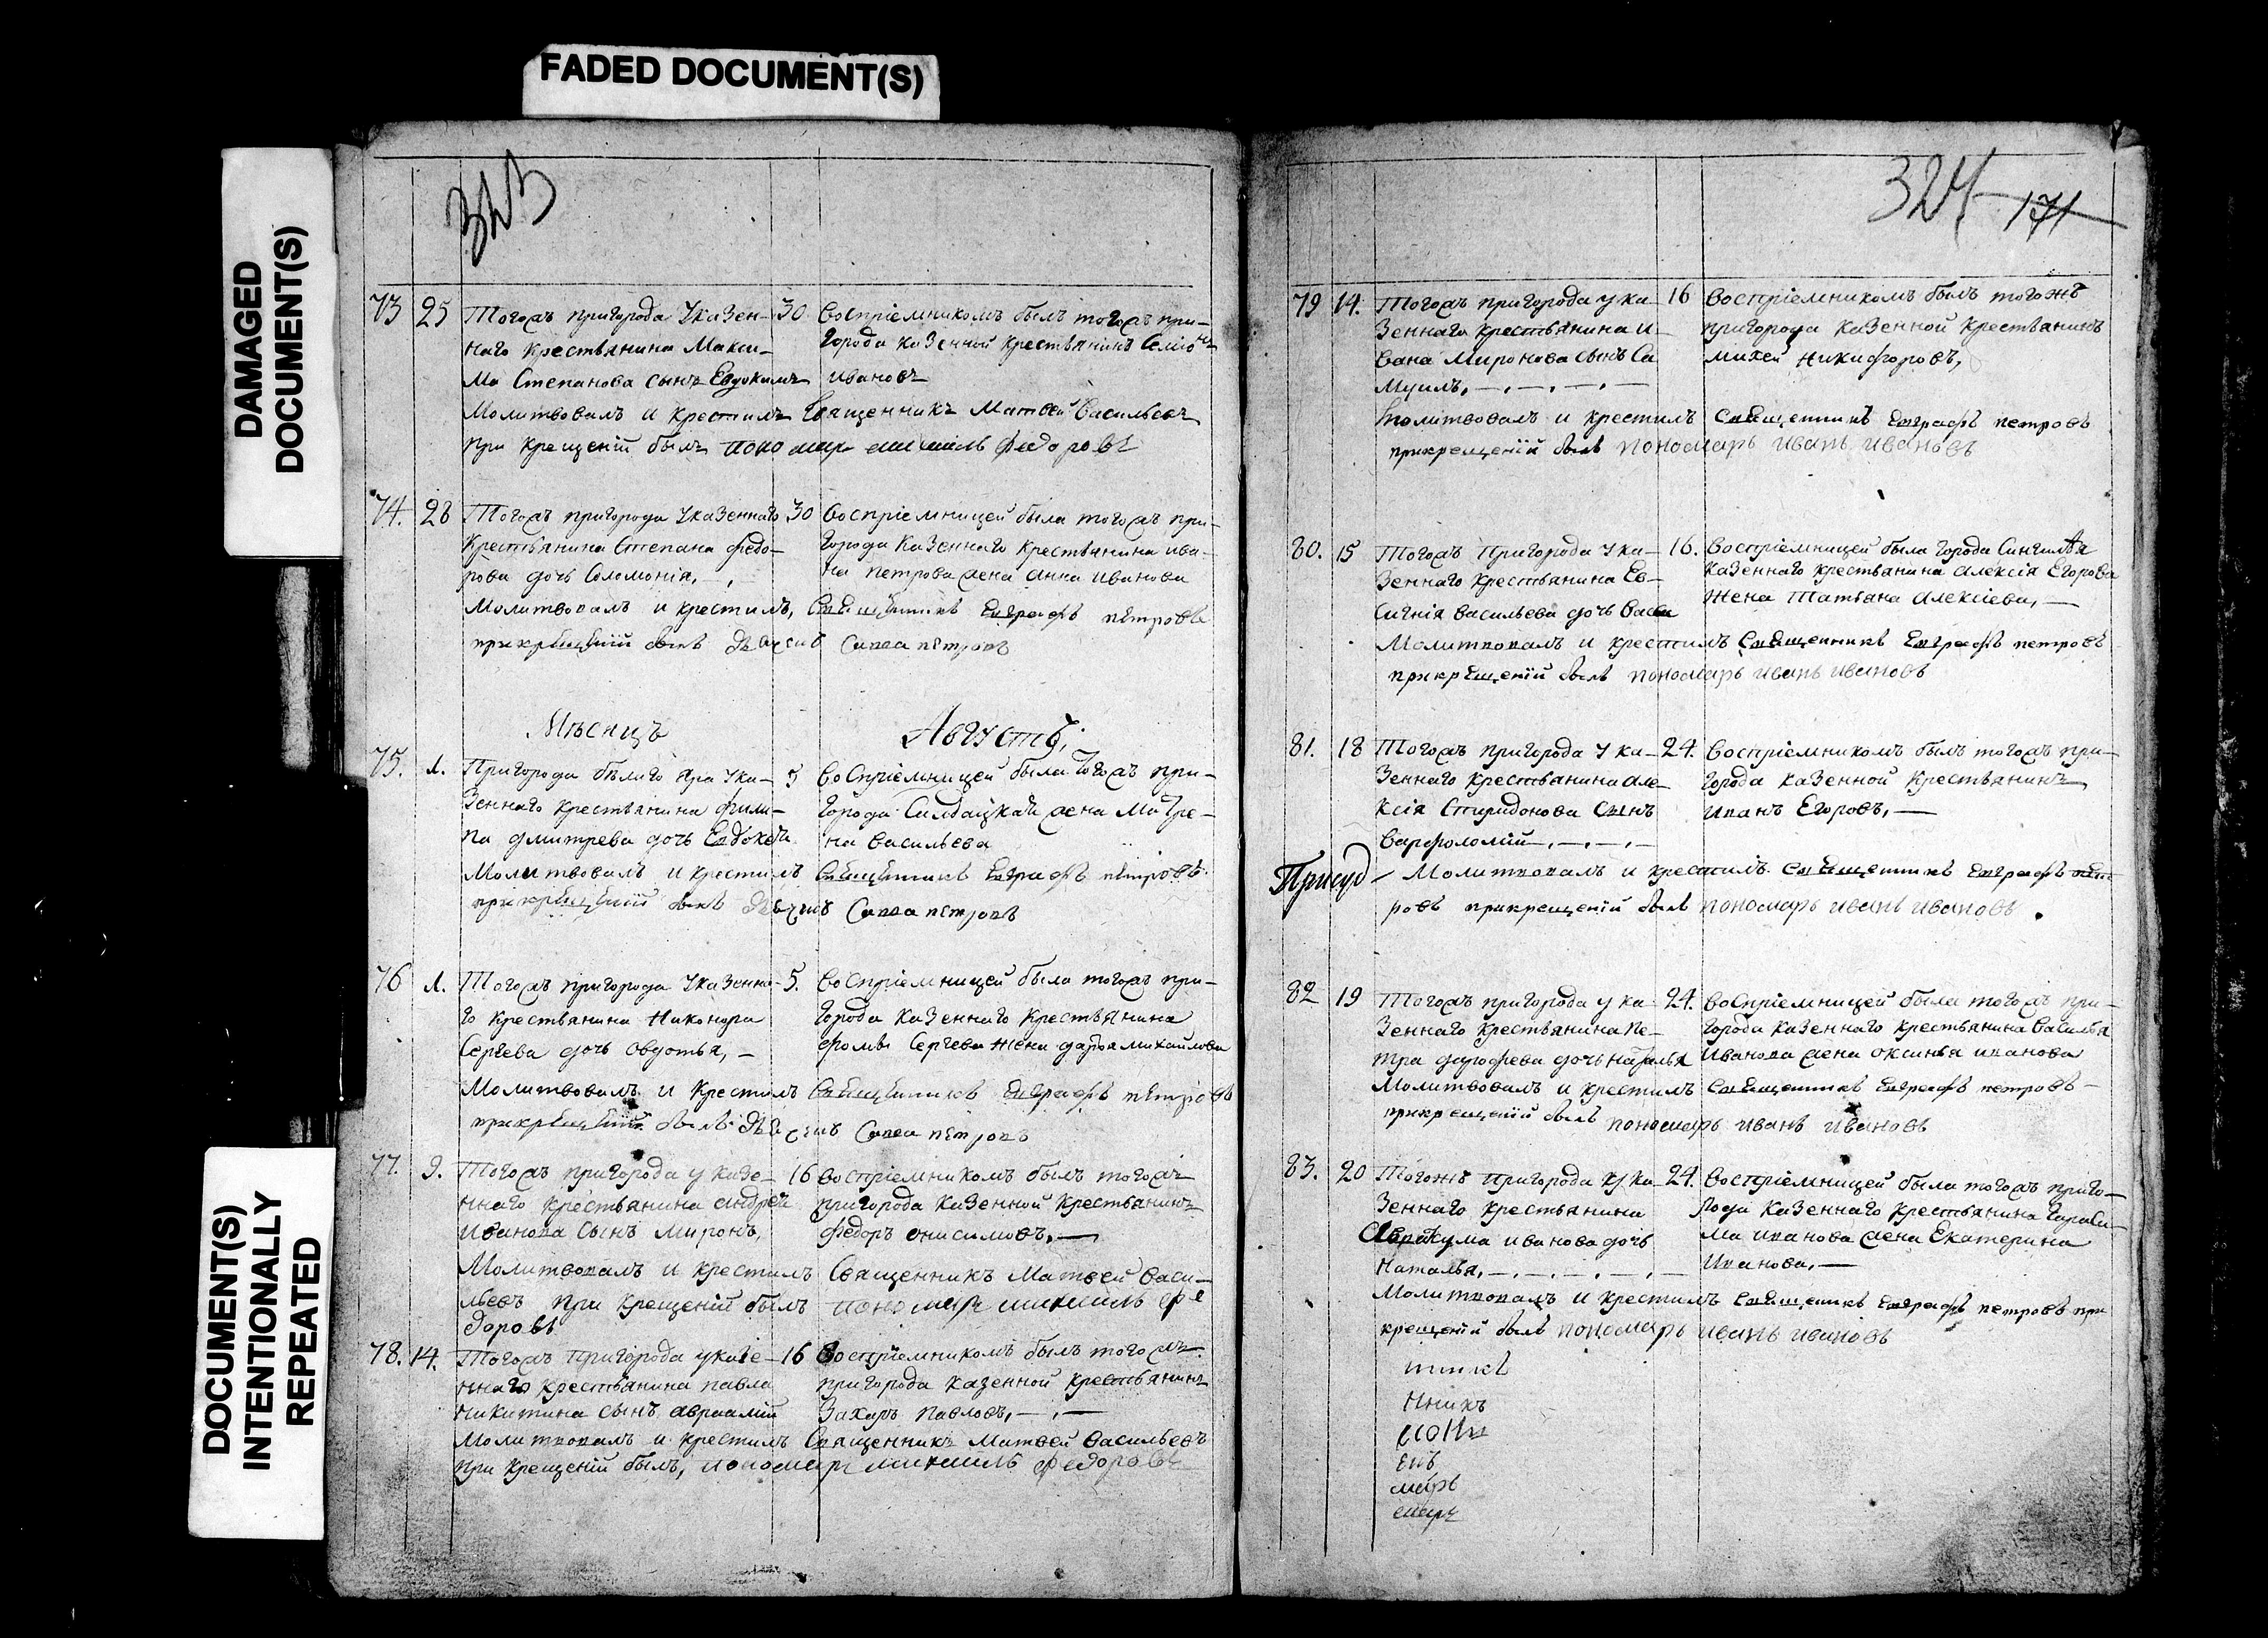 FADED DOCUMENT(S)
DAMAGED
DOCUMENT(S)
DOCUMENT(S)
INTENTIONALLY
REPEATED
323
73 25 Тогожъ пригорода Указен-
наго крестьянина Макси-
ма Степанова сынъ Евдокимъ
30 Воспріемникомъ былъ тогожъ при-
города казенной крестьянинъ Семіонъ
ивановъ
Молитвовалъ и крестилъ Священникъ Матвей Васильевъ
при крещеніи былъ пономарь михаилъ федоровъ
74. 28 Тогожъ пригорода Указеннаго
крестьянина Степана федо-
рова дочь Соломонія,
30 Воспріемницей была тогожъ при-
города казеннаго крестьянина ива-
на петрова жена анна иванова
Молитвовалъ и крестилъ, Священникъ Евграфъ петровъ
прикрещеніи былъ дьячекъ Савва петровъ
Мѣсяцъ Августъ,
75. 1. Пригорода бѣлаго Яра Ука-
зеннаго крестьянина фили-
па дмитрева дочь Евдокея
5 Воспріемницей была тогожъ при-
города Салдацкая жена Матре-
на васильева
Молитвовалъ и крестилъ Священникъ Евграфъ петровъ
прикрещеніи былъ дьячекъ Савва петровъ
76 1. Тогожъ пригорода Указенна-
го крестьянина Никонора
Сергева дочь овдотья, —
5. Воспріемницей была тогожъ при-
города казеннаго крестьянина
фомы Сергева жена дарья михайлова
Молитвовалъ и крестилъ Священникъ Евграфъ петровъ
прикрещеніи былъ дьячекъ Савва петровъ
77. 9. Тогожъ пригорода указе-
ннаго крестьянина андрея
иванова сынъ миронъ,
16 воспріемникомъ былъ тогожъ
пригорода казенной крестьянинъ
федоръ онисимовъ, —
Молитвовалъ и крестилъ Священникъ Матвей Васи-
льевъ при крещеніи былъ пономарь михаилъ фе
доровъ
78. 14. Тогожъ пригорода указе-
ннаго крестьянина павла
никитина сынъ авраамій
16 Воспріемникомъ былъ тогожъ
пригорода казенной крестьянинъ
Захаръ павловъ, —
Молитвовалъ и крестилъ Священникъ Матвей Васильевъ
при крещеніи былъ, пономарь михаилъ федоровъ
324 171
79 14. Тогожъ пригорода ука-
зеннаго крестьянина и-
вана Миронова сынъ Са
муилъ,
16 Воспріемникомъ былъ тогожъ
пригорода казенной крестьянинъ
михей никифоровъ,
молитвовалъ и крестилъ Священникъ Евграфъ петровъ
прикрещеніи былъ пономарь иванъ ивановъ
80. 15 Тогожъ пригорода ука-
зеннаго крестьянина Ев-
сигнія васильева дочь васса
16. Воспріемницей была города Сингилѣя
казеннаго крестьянина алексія Егорова
жена Татьана алексіева, —
Молитвовалъ и крестилъ Священникъ Евграфъ петровъ
прикрещеніи былъ пономарь иванъ ивановъ
81. 18 Тогожъ пригорода ука-
зеннаго крестьянина але-
ксія Спиридонова сынъ
варфоломій
24. Воспріемникомъ былъ тогожъ при-
города казенной крестьянинъ
иванъ Егоровъ, —
Молитвовалъ и крестилъ Священникъ Евграфъ пет-
ровъ прикрещеніи былъ пономарь иванъ ивановъ
82 19 Тогожъ пригорода ука-
зеннаго крестьянина пе-
тра дорофева дочь наталья
24. Воспріемницей была тогожъ при-
города казеннаго крестьянина василья
иванова жена оксинья иванова
Молитвовалъ и крестилъ Священникъ Евграфъ петровъ —
прикрещеніи былъ пономарь иванъ ивановъ
83. 20 Тогожъ пригорода ука-
зеннаго крестьянина
аввакума иванова дочь
Наталья,
24. Воспріемницей была тогожъ приго-
рода казеннаго крестьянина гараси-
ма иванова жена Екатерина
иванова, —
Молитвовалъ и крестилъ Священникъ Евграфъ петровъ при
крещеніи былъ пономарь иванъ ивановъ
нникъ
нникъ
екъ
марь
марь